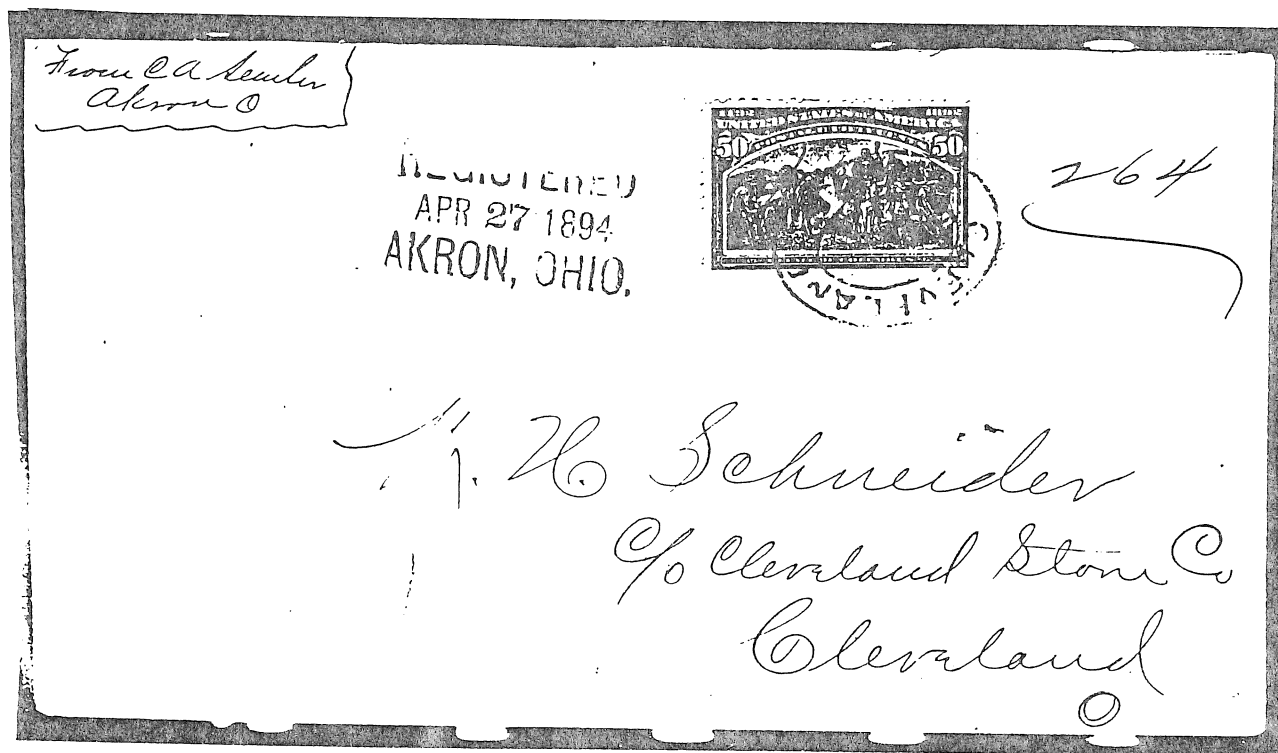 From C A Semler
Akron O
REGISTERED
APR 27 1894
AKRON, OHIO.
1492 1892
UNITED STATES OF AMERICA
50 POSTAGE FIFTY CENTS 50
CLEVELAND
264
H. Schneider
C/o Cleveland Stone Co
Cleveland
O